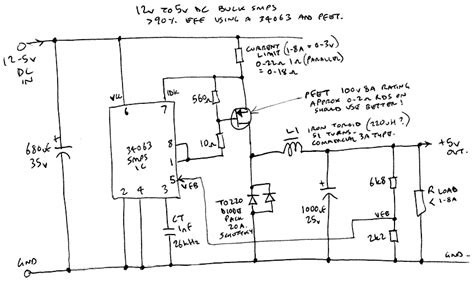 12V TO 5V DC BULK SMPS
>90% EFF USING A 34063 AND PFET.
CURRENT
LIMIT (1.8A = 0.3V)
0.22Ω 1Ω (PARALLEL)
= 0.18Ω
12.5V
DC
IN
680uF
35V
VCC
6
IPK
7
34063
SMPS
IC
8
1
5
2
4
3
560Ω
10Ω
PFET 100V 8A RATING
APPROX 0.2Ω RDS ON
SHOULD USE BETTER!
L1
IRON TOROID (220uH?)
51 TURNS.
COMMERCIAL 3A TYPE.
+5V
OUT.
VFB
CT
1nF
26KHZ
TO220
DIODE
PACK
20A.
SCHOTTKY
1000uF
25V
6k8
VFB
2k2
R LOAD
<1.8A
GND
GND